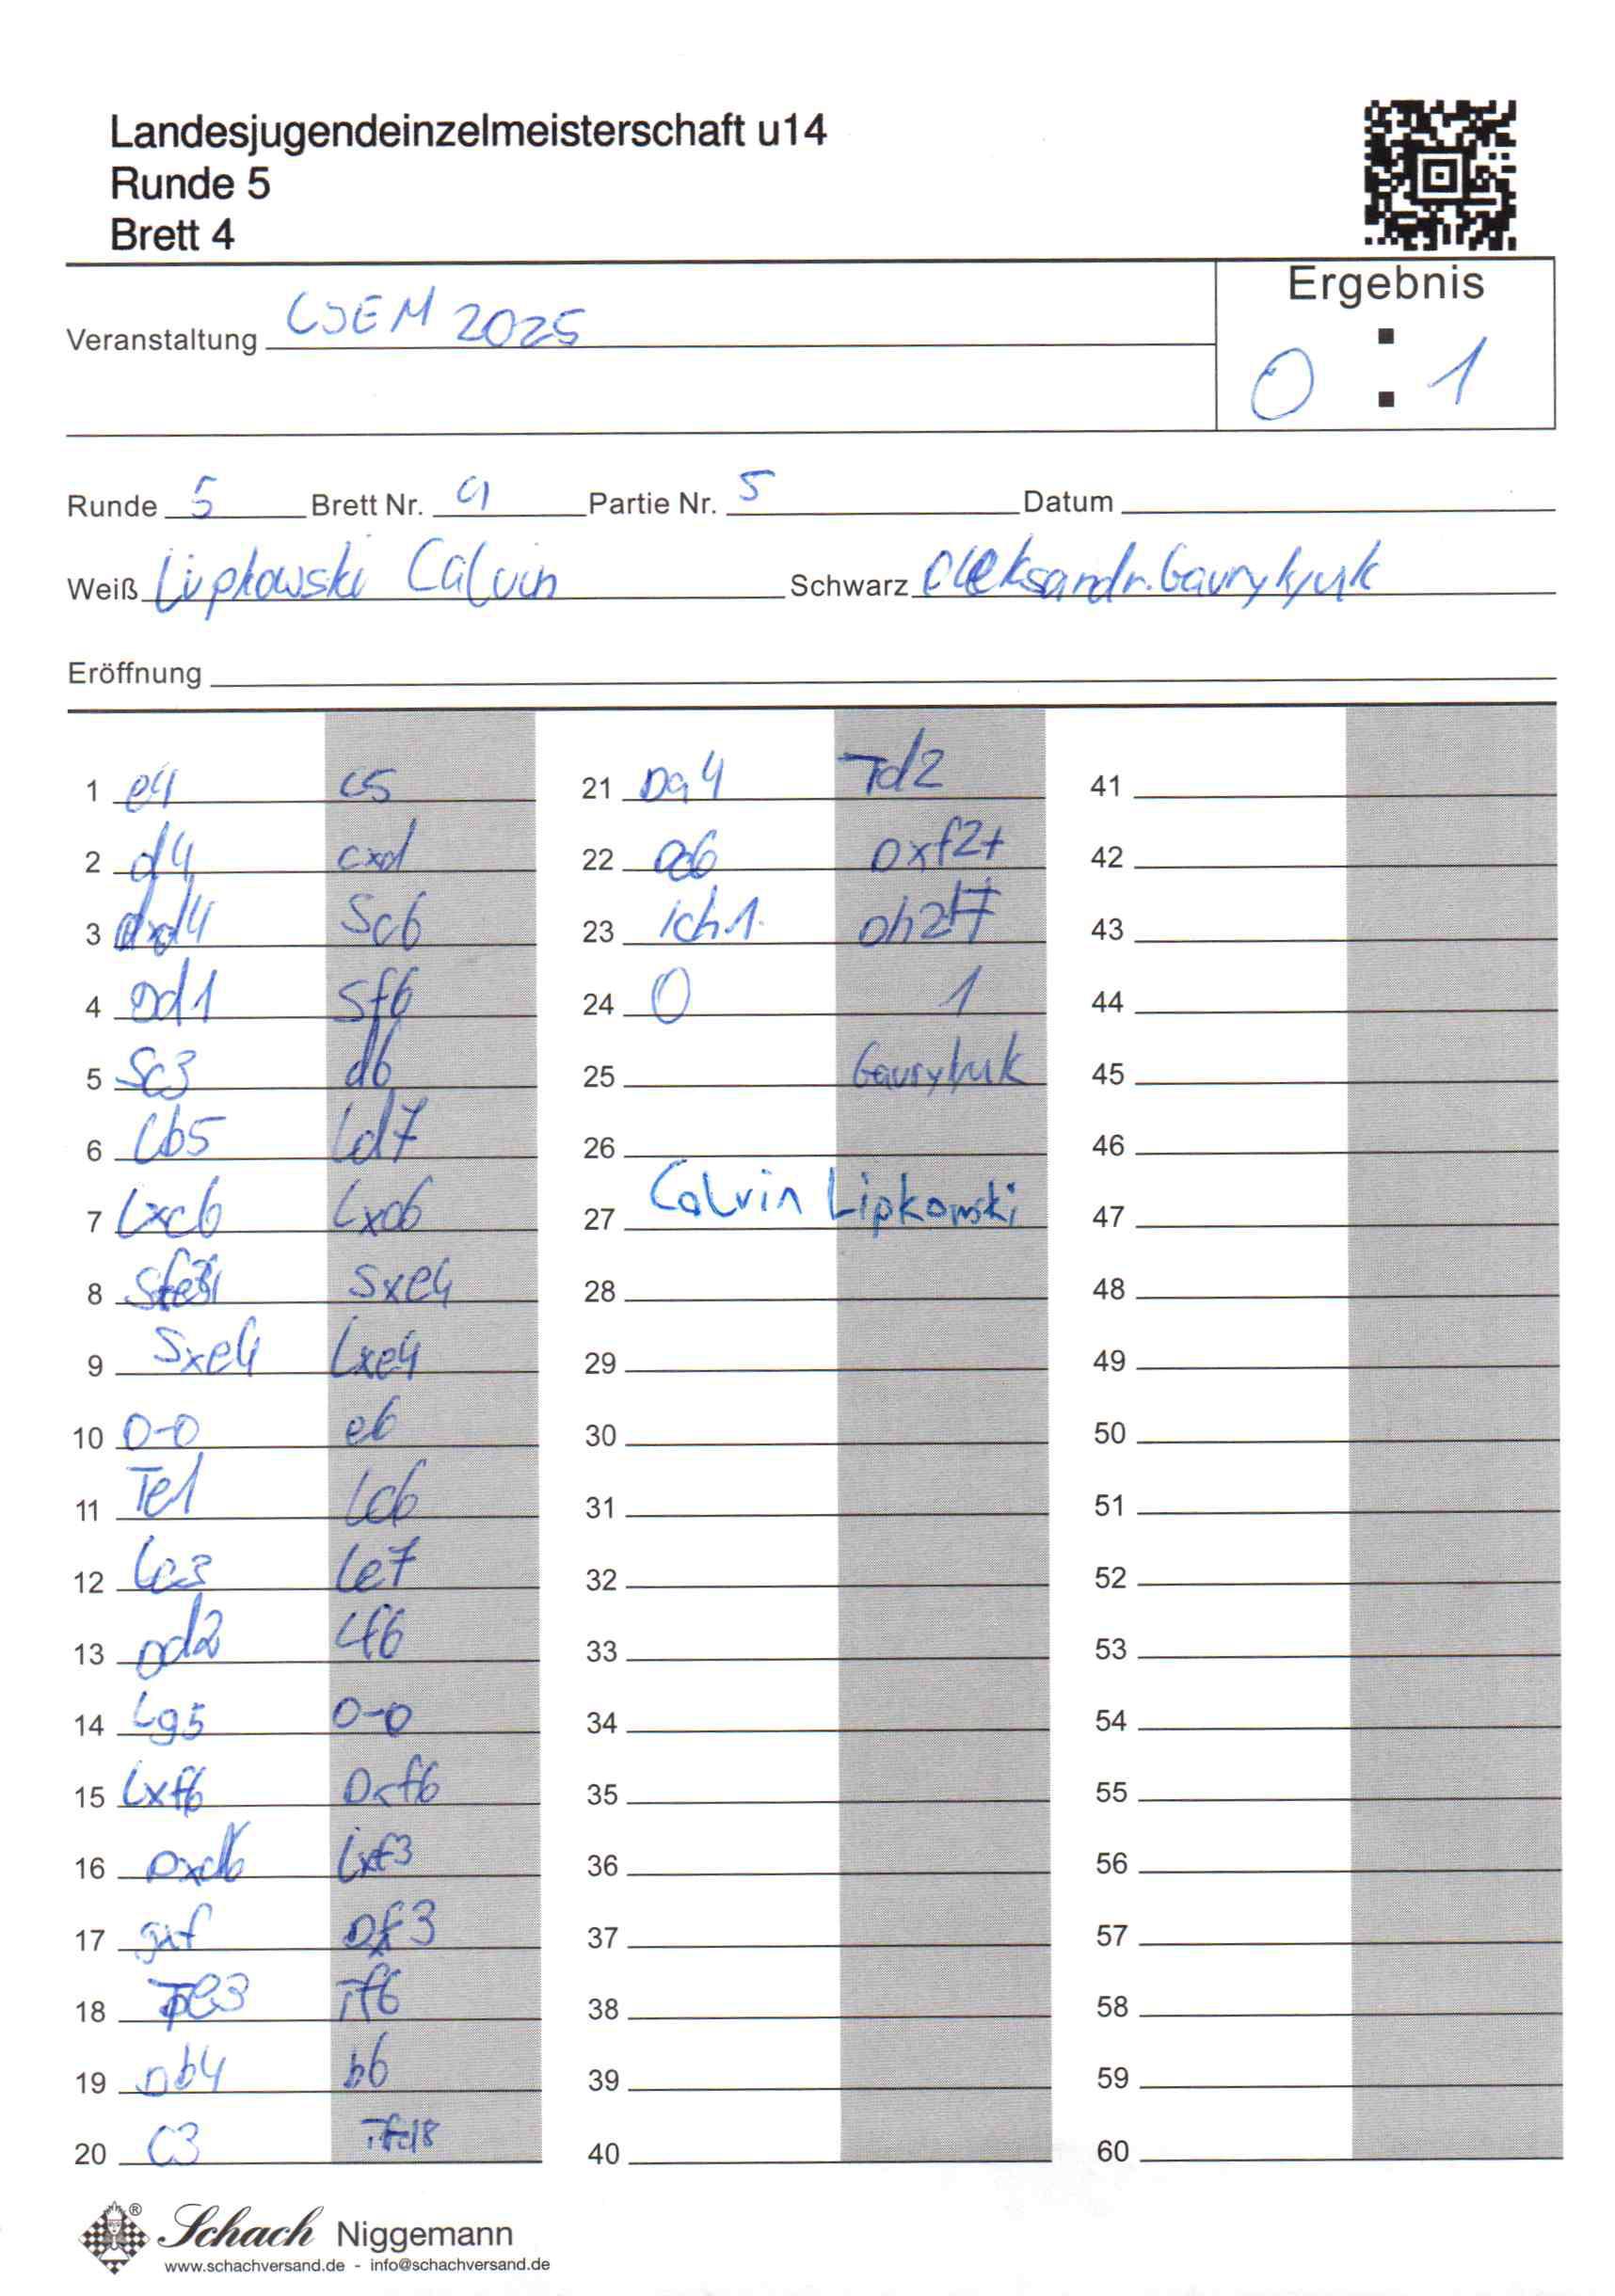 Landesjugendeinzelmeisterschaft u14
Runde 5
Brett 4
Ergebnis
0 : 1
Veranstaltung LJEM 2025
Runde 5 Brett Nr. 4 Partie Nr. 5 Datum
Weiß Lipkowski Calvin Schwarz Oleksandr Gavrylyuk
Eröffnung
1 e4 c5
2 d4 cxd
3 Dxd4 Sc6
4 Dd1 Sf6
5 Sc3 d6
6 Lb5 Ld7
7 Lxc6 Lxc6
8 Sf3 Sxe4
9 Sxe4 Lxe4
10 0-0 e6
11 Te1 Lc6
12 Le3 Le7
13 Dd2 Lf6
14 Lg5 0-0
15 Lxf6 Dxf6
16 Dxd6 Lxf3
17 gxf Dxf3
18 Te3 Df6
19 Db4 b6
20 c3 Tfd8
21 Da4 Td2
22 Dc6 Dxf2+
23 Kh1 Dh2#
24 0 1
25 Gavrylyuk
26
27 Calvin Lipkowski
28
29
30
31
32
33
34
35
36
37
38
39
40
41
42
43
44
45
46
47
48
49
50
51
52
53
54
55
56
57
58
59
60
Schach Niggemann
www.schachversand.de - info@schachversand.de